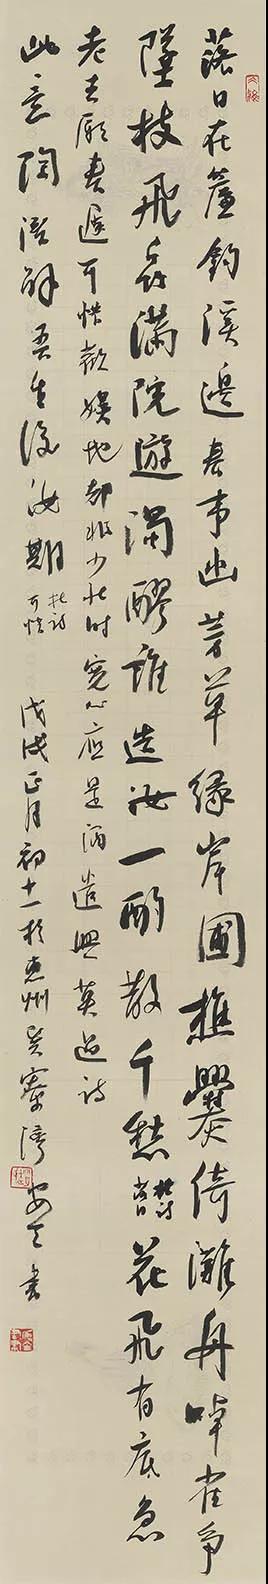 落日在簾鈎溪邊春事幽芳草緣岸圃樵爨倚灘舟啅雀爭
墜枝飛虫滿院遊濁醪誰造汝一酌散千愁杜詩落日花飛有底急
老去願春遲可惜歡娱地都非少壯時寬心應是酒遣興莫過詩
此意陶潛解吾生後汝期杜詩可惜
戊戌正月初十一於惠州巽寮灣
書